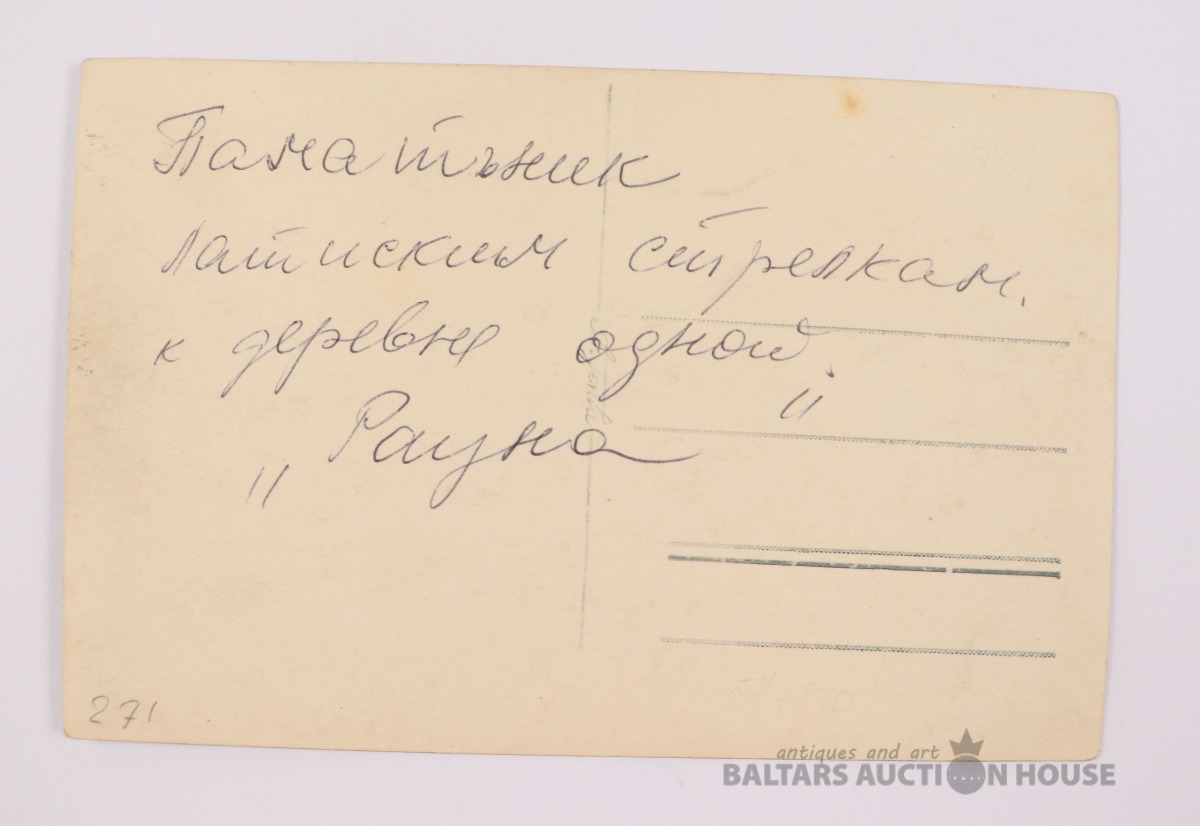 Паматъник
Латиским стрелкам.
к деревне одной.
„Рауна"
271
antiques and art
BALTARS AUCTION HOUSE